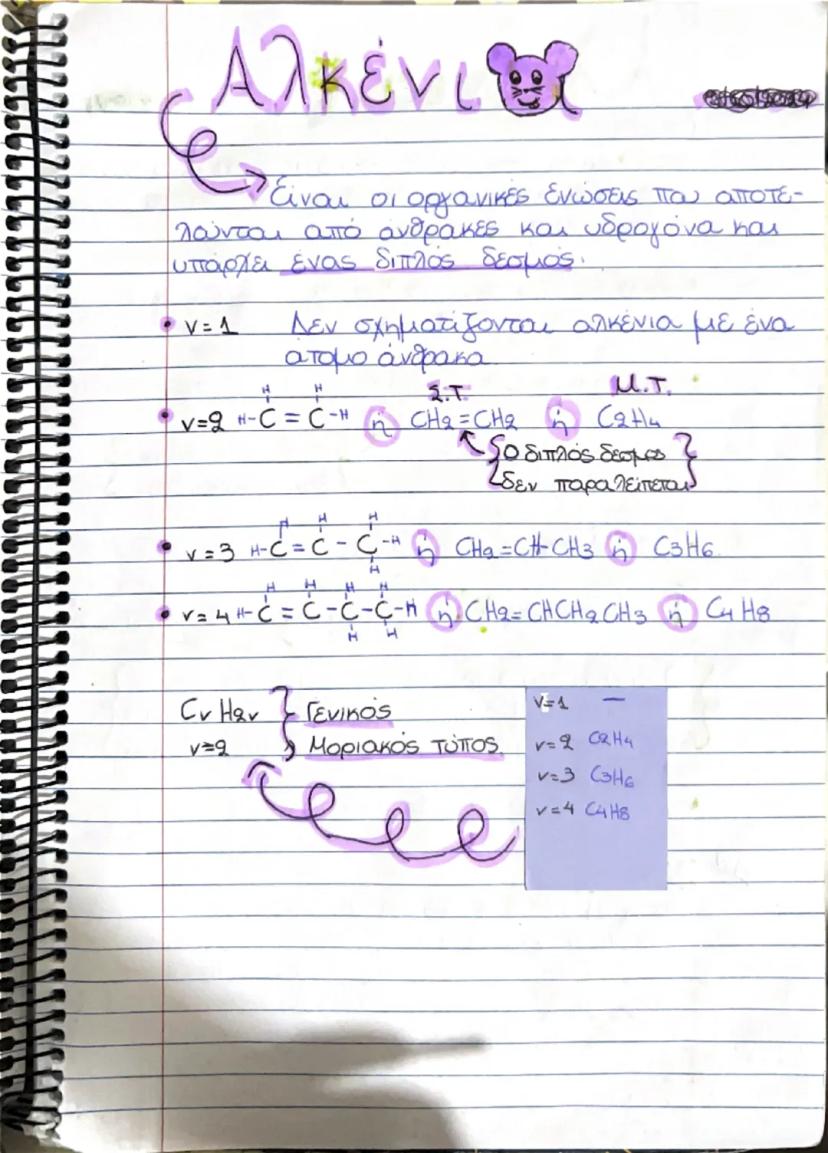 Αλκένια
Είναι οι οργανικές ενώσεις που αποτε-
λούνται από άνθρακες και υδρογόνα και
υπάρχει ένας διπλός δεσμός.
• ν=1 Δεν σχηματίζονται αλκένια με ένα
άτομο άνθρακα
H H Σ.Τ. Μ.Τ.
• ν=2 H-C = C-H ή CH2=CH2 ή C2H4
{Ο διπλός δεσμός}
{δεν παραλείπεται}
H H H
• ν=3 H-C = C - C-H ή CH2=CH-CH3 ή C3H6
H
H H H H
• ν=4 H-C = C - C-C-H ή CH2=CHCH2CH3 ή C4H8
H H
CνH2ν } Γενικός
ν≥2 } Μοριακός τύπος
ν=1 —
ν=2 C2H4
ν=3 C3H6
ν=4 C4H8